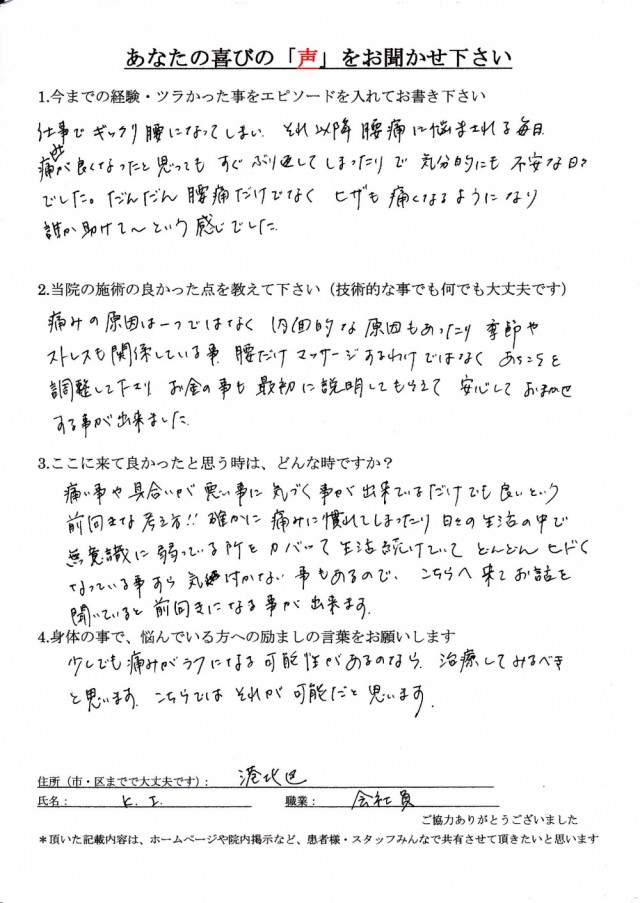 あなたの喜びの「声」をお聞かせ下さい
1.今までの経験・ツラかった事をエピソードを入れてお書き下さい
仕事でギックリ腰になってしまい それ以降 腰痛に悩まされる毎日
痛が良くなったと思っても すぐぶり返してしまったりで 気分的にも 不安な日々
でした。だんだん 腰痛だけでなく ヒザも痛くなるようになり
誰か助けて〜という感じでした
2.当院の施術の良かった点を教えて下さい（技術的な事でも何でも大丈夫です）
痛みの原因は一つではなく 内面的な原因もあったり 季節や
ストレスも関係している事 腰だけマッサージするわけではなく あちこちを
調整してたり お金の事も最初に説明してもらえて 安心しておまかせ
する事が出来ました
3.ここに来て良かったと思う時は、どんな時ですか？
痛い事や具合いが悪い事に気づく事が出来ているだけでも良いという
前向きな考え方!! 確かに痛みに慣れてしまったり 日々の生活の中で
無意識に弱っている所をカバーって生活続けていて どんどんヒドく
なっている事すら気付かない事もあるので、こちらへ来てお話を
聞いていると前向きになる事が出来ます.
4.身体の事で、悩んでいる方への励ましの言葉をお願いします
少しでも痛みがラクになる可能性があるのなら 治療してみるべき
と思います. こちらではそれが可能だと思います.
住所（市・区までで大丈夫です）： 港北区
氏名： K. I. 職業： 会社員
ご協力ありがとうございました
＊頂いた記載内容は、ホームページや院内掲示など、患者様・スタッフみんなで共有させて頂きたいと思います